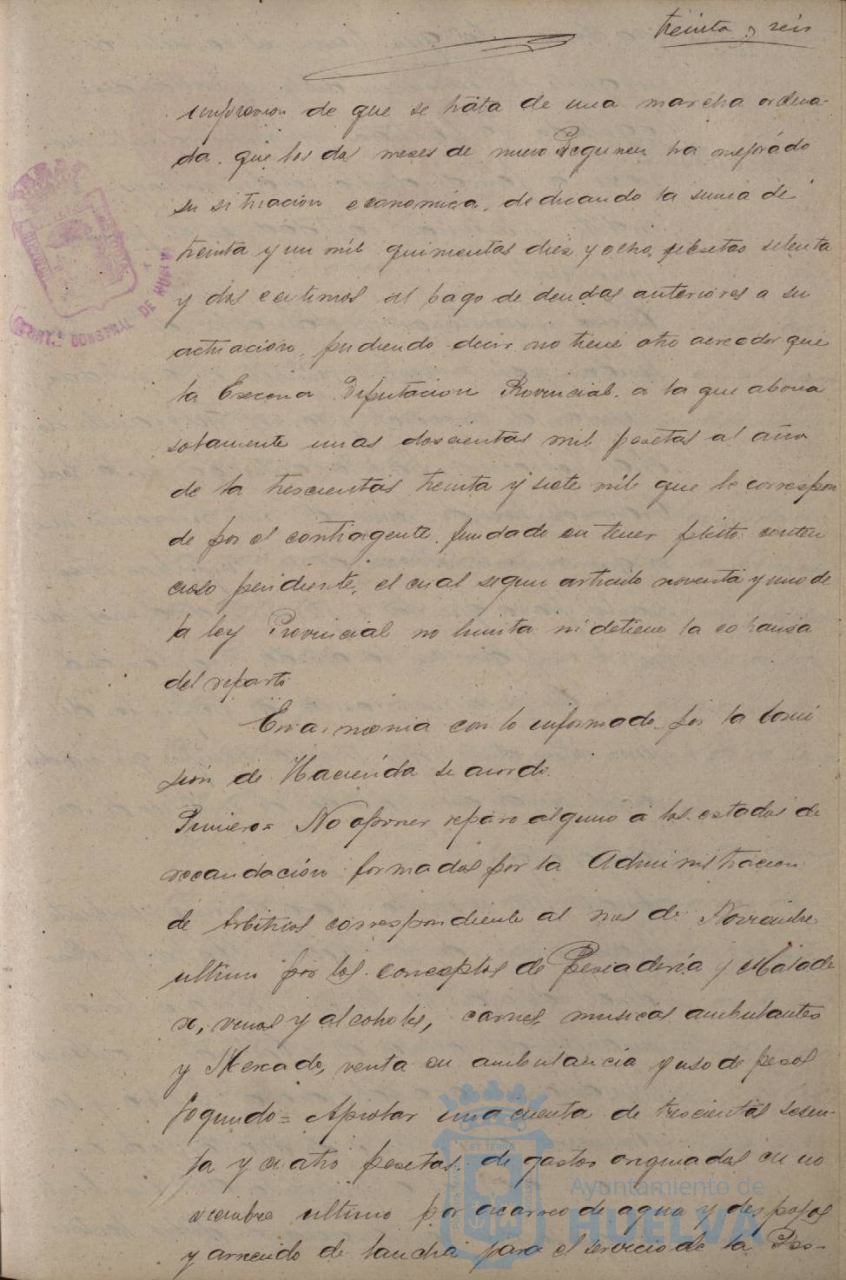 treinta y seis
impresion de que se trata de una marcha ordena-
da, que los dos meses de nuevo Regimen ha mejorado
su situacion economica, dedicando la suma de
treinta y un mil quinientas diez y ocho pesetas setenta
y dos centimos al pago de deudas anteriores a su
actuacion, pudiendo decir no tiene otro acreedor que
la Excma Diputacion Provincial, a la que abona
solamente unas doscientas mil pesetas al año
de la trescientas treinta y siete mil que le correspon
de por el contingente, fundado en tener pleito conten
cioso pendiente, el cual segun articulo noventa y uno de
la ley Provincial no limita ni detiene la cobranza
del reparto
En armonia con lo informado por la Comi
sión de Hacienda se acordó.
Primero= No oponer reparo alguno a los estados de
recaudación formados por la Administracion
de Arbitrios correspondiente al mes de Noviembre
ultimo por los conceptos de Pescaderia y Matade
ro, vinos y alcoholes, carnes, musicas ambulantes
y Mercado, venta en ambulancia y uso de pesas
Segundo= Aprobar una cuenta de trescientas sesen-
ta y cuatro pesetas de gastos originados en no
viembre ultimo por acarreo de agua y despojos
y arriendo de lancha para el servicio de la Pes-
Ayuntamiento de
HUELVA